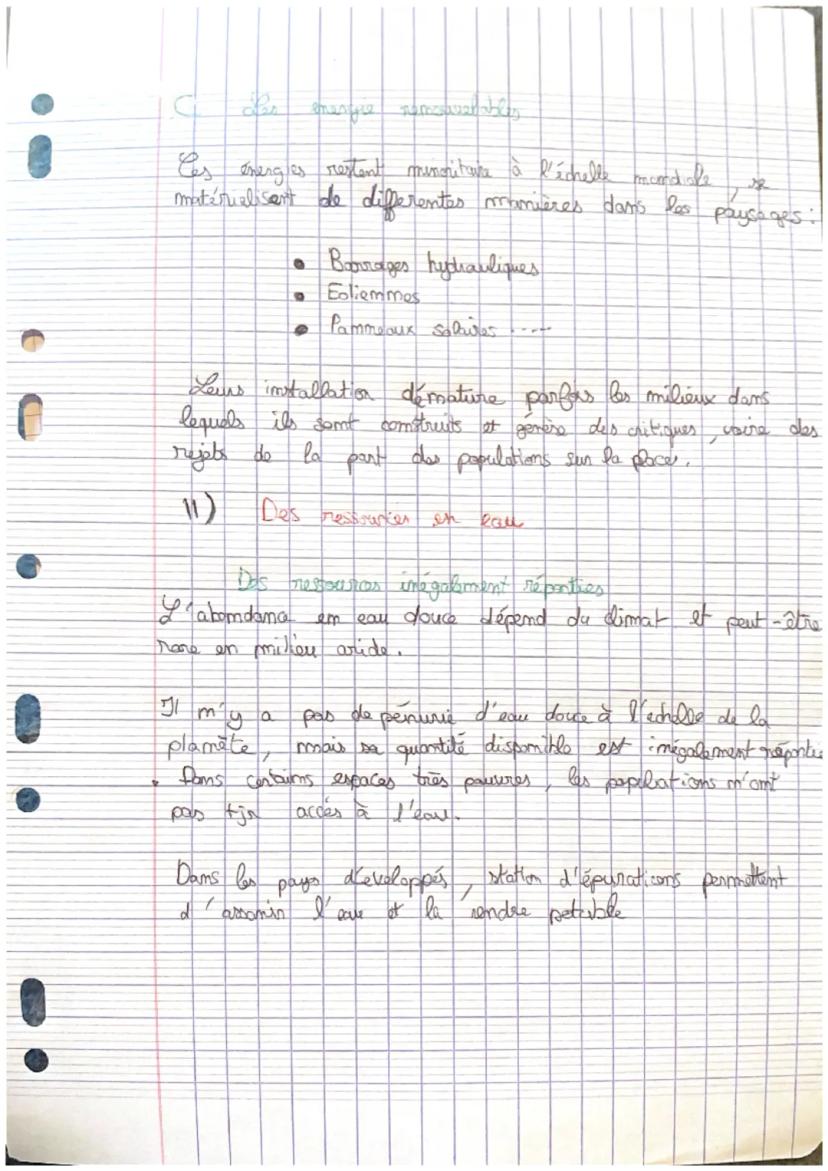 C Les energie renouvelables
Ces énergies restent minoritaire à l'échelle mondiale, se
matérialisent de differentes manières dans les paysages :
• Barrages hydrauliques
• Eoliennes
• Panneaux solaires ....
Leurs installation dénature parfois les milieux dans
lequels ils sont construits et génère des critiques, voire des
rejets de la part des populations sur la place.
II) Des ressources en eau
Des ressources inégalement réparties
L'abondance en eau douce dépend du climat et peut-être
rare en milieu aride.
Il n'y a pas de pénurie d'eau douce à l'echelle de la
planète, mais sa quantité disponible est inégalement répartie
. Dans certains espaces très pauvres, les populations n'ont
pas tjr accès à l'eau.
Dans les pays développés, station d'épurations permettent
d'assainir l'eau et la rendre potable